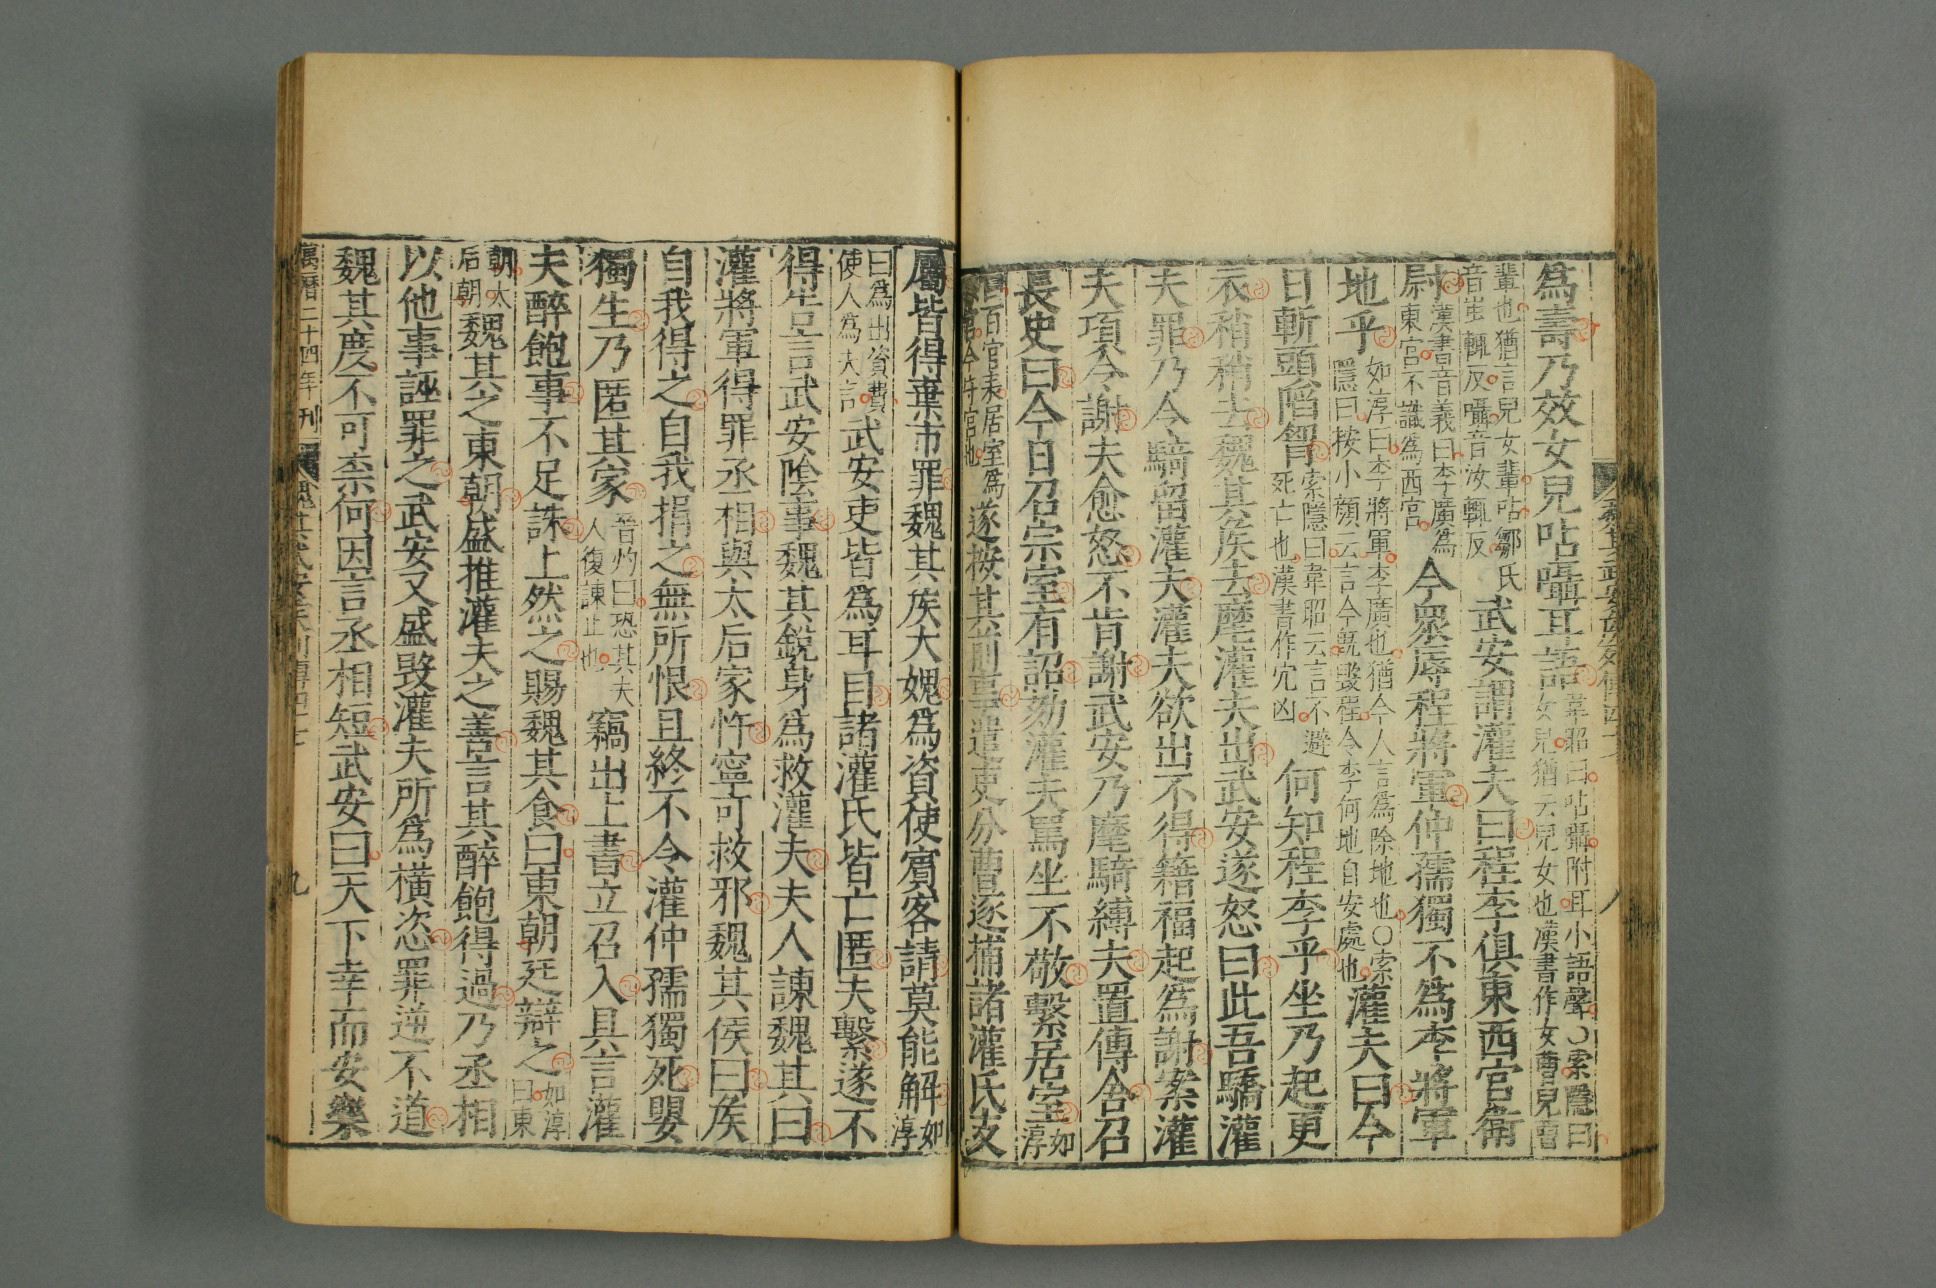 魏其武安侯列傳四十七
八
爲壽乃效女兒呫囁耳語韋昭曰呫囁附耳小語聲〇索隱曰
女兒猶云兒女也漢書作女曹兒曹
輩也猶言兒女輩呫鄒氏
音蚩輒反囁音汝輒反武安謂灌夫曰程李俱東西宮衞
尉漢書音義曰李廣爲
東宮不識爲西宮今眾辱程將軍仲孺獨不爲李將軍
地乎如淳曰李將軍李廣也猶今人言爲除地也〇索
隱曰按小顏云言今旣毀程令李何地自安處也灌夫曰今
日斬頭陷胷索隱曰韋昭云言不避
死亡也漢書作穴凶何知程李乎坐乃起更
衣稍稍去魏其矦去麾灌夫出武安遂怒曰此吾驕灌
夫罪乃令騎留灌夫灌夫欲出不得籍福起爲謝案灌
夫項令謝夫愈怒不肯謝武安乃麾騎縛夫置傳舍召
長史曰今日召宗室有詔劾灌夫罵坐不敬繫居室如淳
曰百官表居室爲
保宮今守宮也遂按其前事遣吏分曹逐捕諸灌氏支
屬皆得棄市罪魏其矦大媿爲資使賓客請莫能解如淳
曰爲出資費
使人爲夫言武安吏皆爲耳目諸灌氏皆亡匿夫繫遂不
得告言武安陰事魏其銳身爲救灌夫夫人諫魏其曰
灌將軍得罪丞相與太后家忤寧可救邪魏其侯曰矦
自我得之自我捐之無所恨且終不令灌仲孺獨死嬰
獨生乃匿其家晉灼曰恐其夫
人復諫止也竊出上書立召入具言灌
夫醉飽事不足誅上然之賜魏其食曰東朝廷辯之如淳
曰東
朝太
后朝魏其之東朝盛推灌夫之善言其醉飽得過乃丞相
以他事誣罪之武安又盛毀灌夫所爲橫恣罪逆不道
魏其度不可柰何因言丞相短武安曰天下幸而安樂
萬曆二十四年刊
魏其武安矦列傳四十七
九